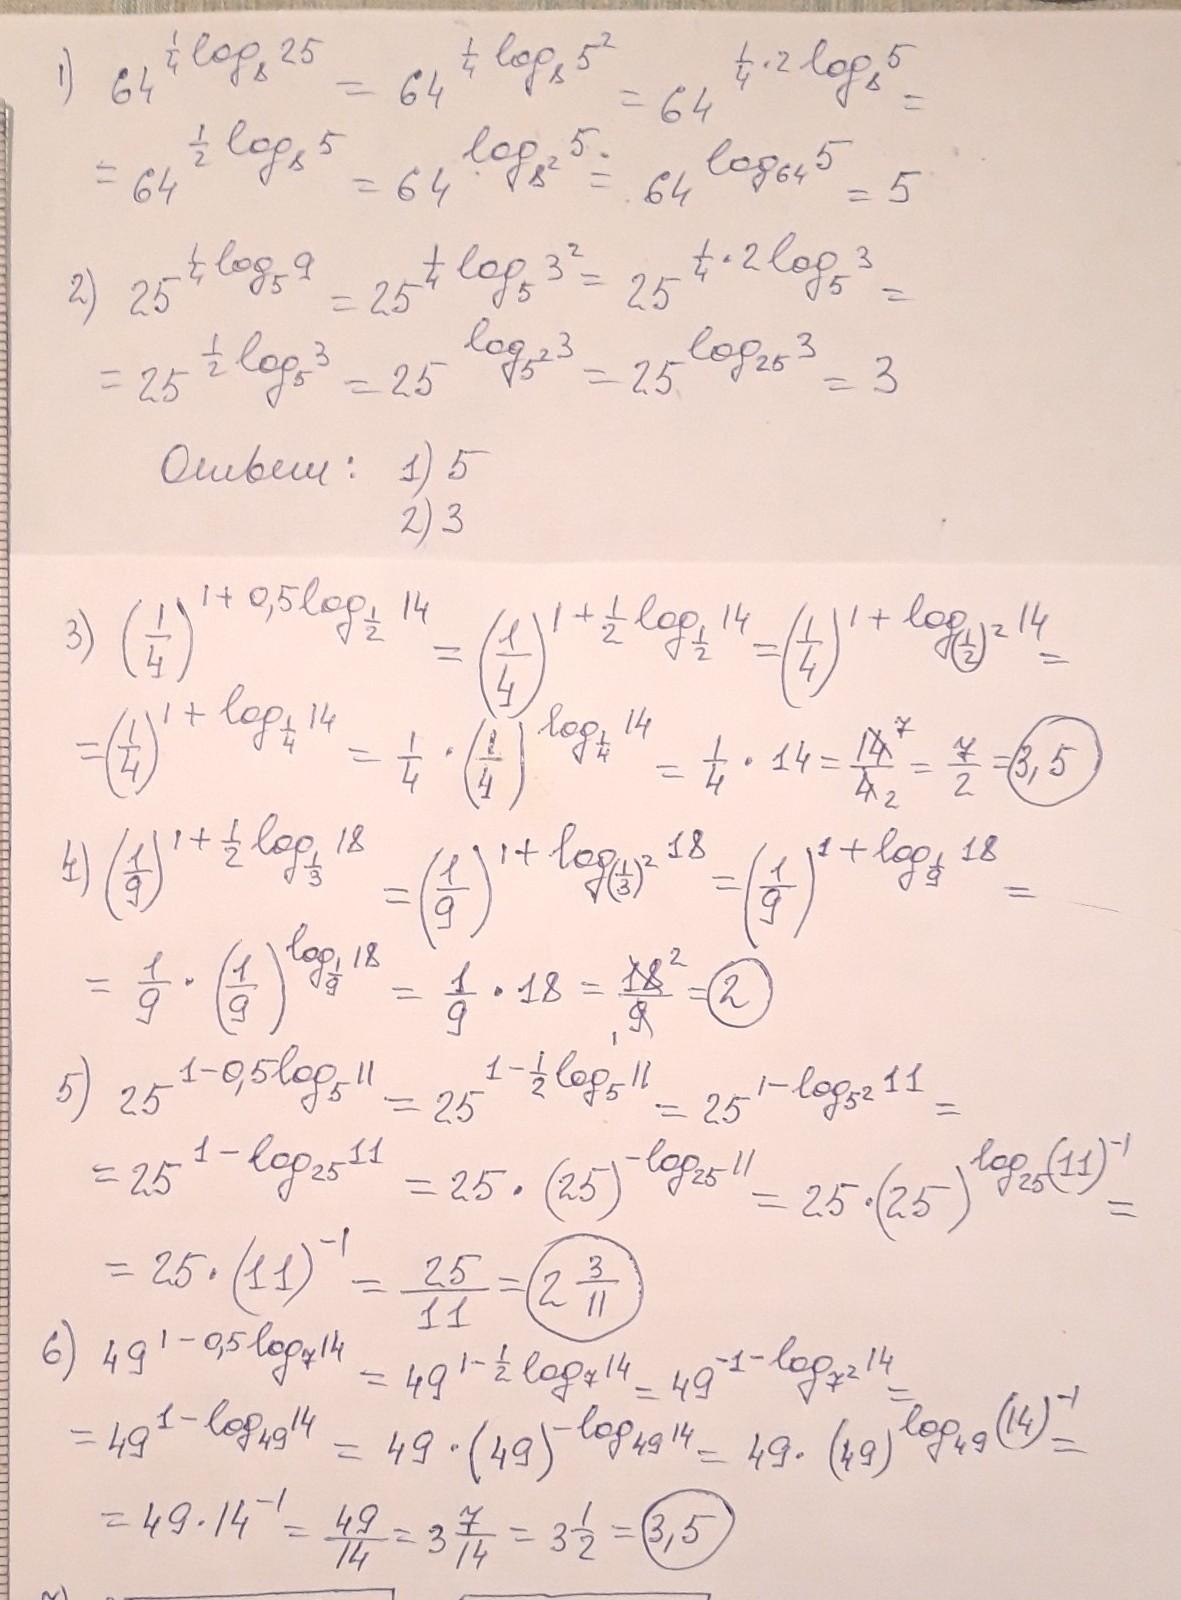 1) 64^{\frac{1}{4}\log_8 25} = 64^{\frac{1}{4}\log_8 5^2} = 64^{\frac{1}{4}\cdot 2\log_8 5} =
= 64^{\frac{1}{2}\log_8 5} = 64^{\log_{8^2} 5} = 64^{\log_{64} 5} = 5
2) 25^{\frac{1}{4}\log_5 9} = 25^{\frac{1}{4}\log_5 3^2} = 25^{\frac{1}{4}\cdot 2\log_5 3} =
= 25^{\frac{1}{2}\log_5 3} = 25^{\log_{5^2} 3} = 25^{\log_{25} 3} = 3
Ответ: 1) 5
2) 3
3) (\frac{1}{4})^{1+0,5\log_{\frac{1}{2}} 14} = (\frac{1}{4})^{1+\frac{1}{2}\log_{\frac{1}{2}} 14} = (\frac{1}{4})^{1+\log_{(\frac{1}{2})^2} 14} =
= (\frac{1}{4})^{1+\log_{\frac{1}{4}} 14} = \frac{1}{4} \cdot (\frac{1}{4})^{\log_{\frac{1}{4}} 14} = \frac{1}{4} \cdot 14 = \frac{14^7}{4_2} = \frac{7}{2} = 3,5
4) (\frac{1}{9})^{1+\frac{1}{2}\log_{\frac{1}{3}} 18} = (\frac{1}{9})^{1+\log_{(\frac{1}{3})^2} 18} = (\frac{1}{9})^{1+\log_{\frac{1}{9}} 18} =
= \frac{1}{9} \cdot (\frac{1}{9})^{\log_{\frac{1}{9}} 18} = \frac{1}{9} \cdot 18 = \frac{18^2}{_1 9} = 2
5) 25^{1-0,5\log_5 11} = 25^{1-\frac{1}{2}\log_5 11} = 25^{1-\log_{5^2} 11} =
= 25^{1-\log_{25} 11} = 25 \cdot (25)^{-\log_{25} 11} = 25 \cdot (25)^{\log_{25} (11)^{-1}} =
= 25 \cdot (11)^{-1} = \frac{25}{11} = 2\frac{3}{11}
6) 49^{1-0,5\log_7 14} = 49^{1-\frac{1}{2}\log_7 14} = 49^{-1-\log_{7^2} 14} =
= 49^{1-\log_{49} 14} = 49 \cdot (49)^{-\log_{49} 14} = 49 \cdot (49)^{\log_{49} (14)^{-1}} =
= 49 \cdot 14^{-1} = \frac{49}{14} = 3\frac{7}{14} = 3\frac{1}{2} = 3,5